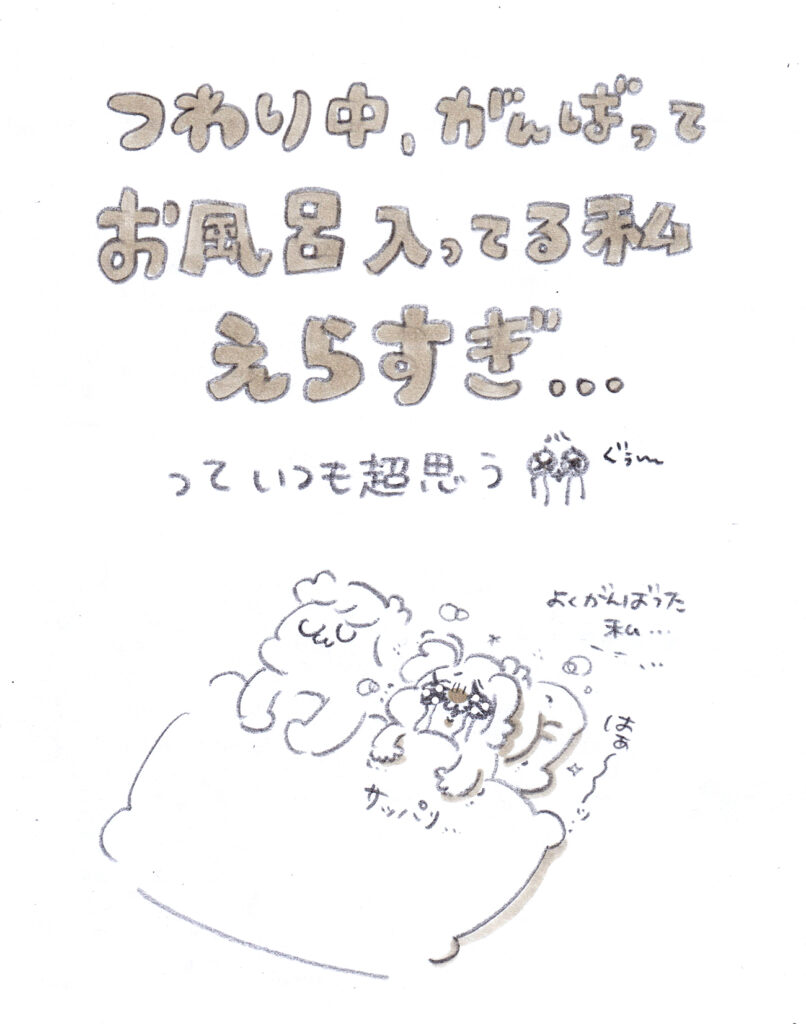 つわり中、がんばって
お風呂入ってる私
えらすぎ...
っていつも超思う
ぐぅ〜
よくがんばった
私...
はぁ〜ッ
サッパリ...